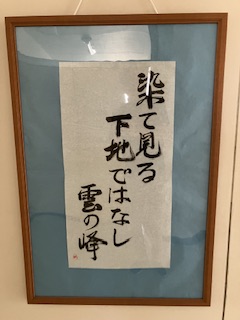 染て見る
下地ではなし
雲の峰